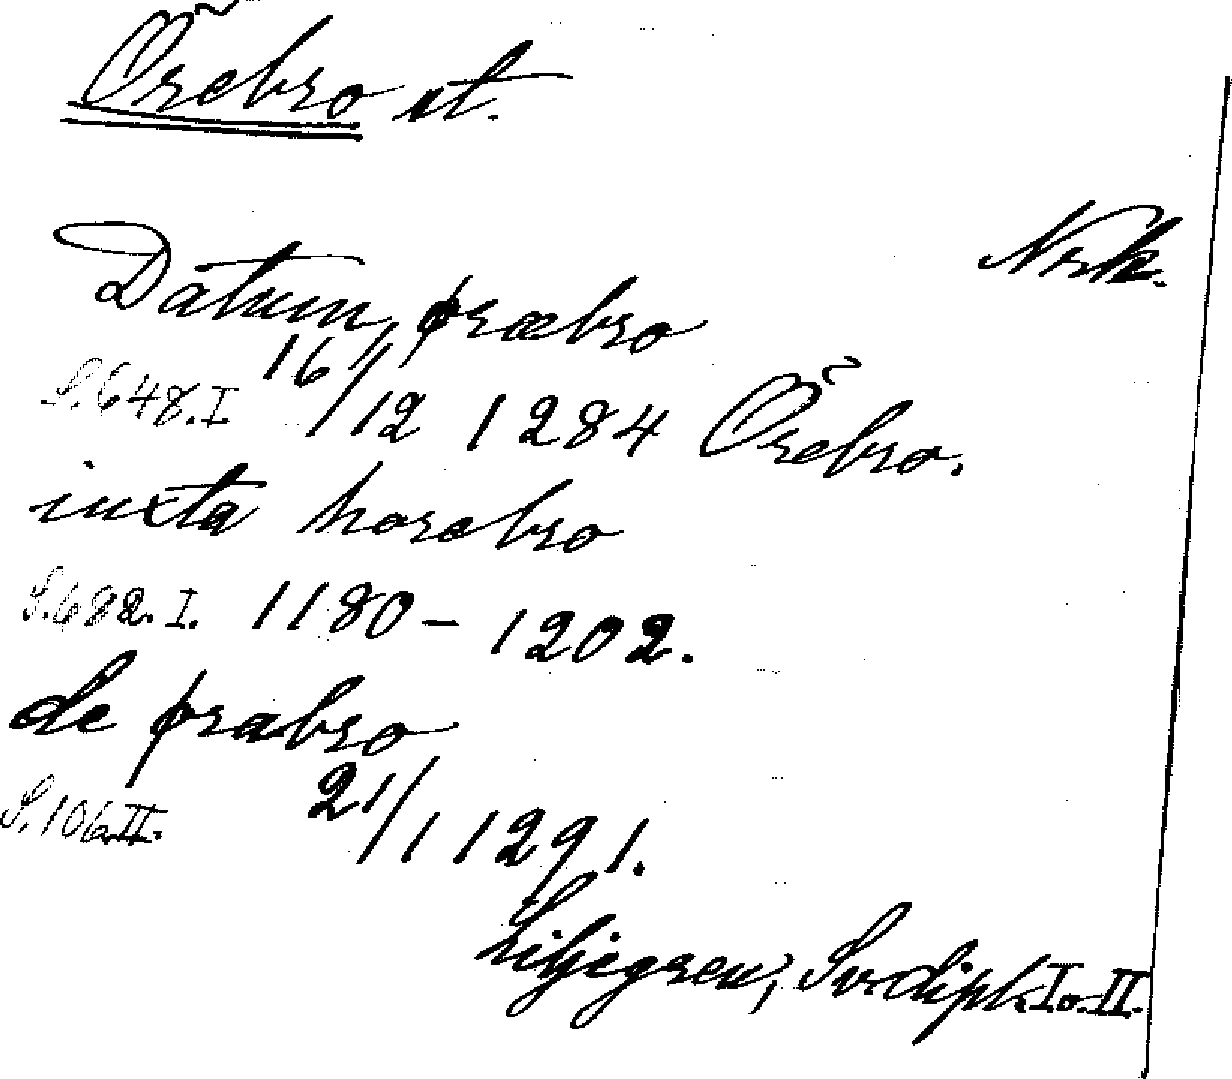 Örebro st.
Nrk.
Datum, øræbro
S. 648. I 16/12 1284 Örebro.
iuxta horebro
S. 682. I. 1180 - 1202.
de ørabro
S. 106 II. 21/1 1291.
Liljegren, Sv. dipl. I o. II.